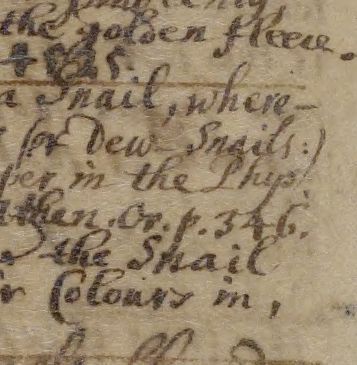 the golden fleece.
1825.
a Snail, where-
for Dew Snails:)
per in the Phys.
then. Or. p. 346.
the Snail
r Colours in,